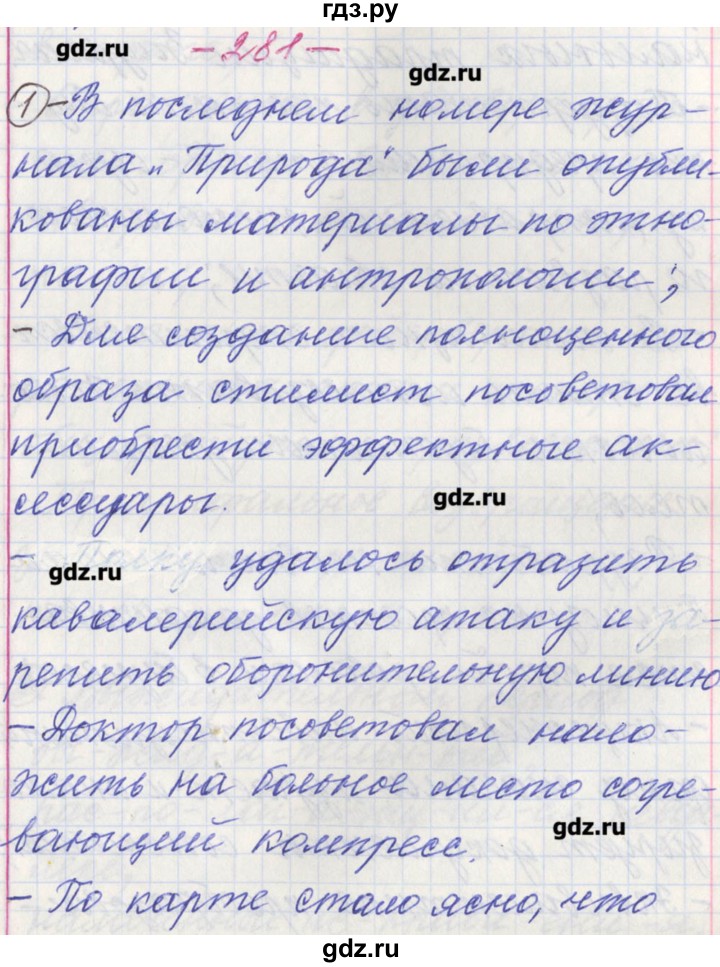 гдз.ру
- 281 -
gdz.ru
gdz.ru
1 - В последнем номере жур-
нала „Природа" были опубли-
кованы материалы по этно-
gdz.ru
графии и антропологии;
- Для создание полноценного
образа стилист посоветовал
приобрести эффектные ак-
сессуары.
gdz.ru
- Полку удалось отразить
gdz.ru
кавалерийскую атаку и за-
репить оборонительную линию
- Доктор посоветовал нало-
жить на больное место согре-
вающий компресс.
gdz.ru
- По карте стало ясно, что
gdz.ru